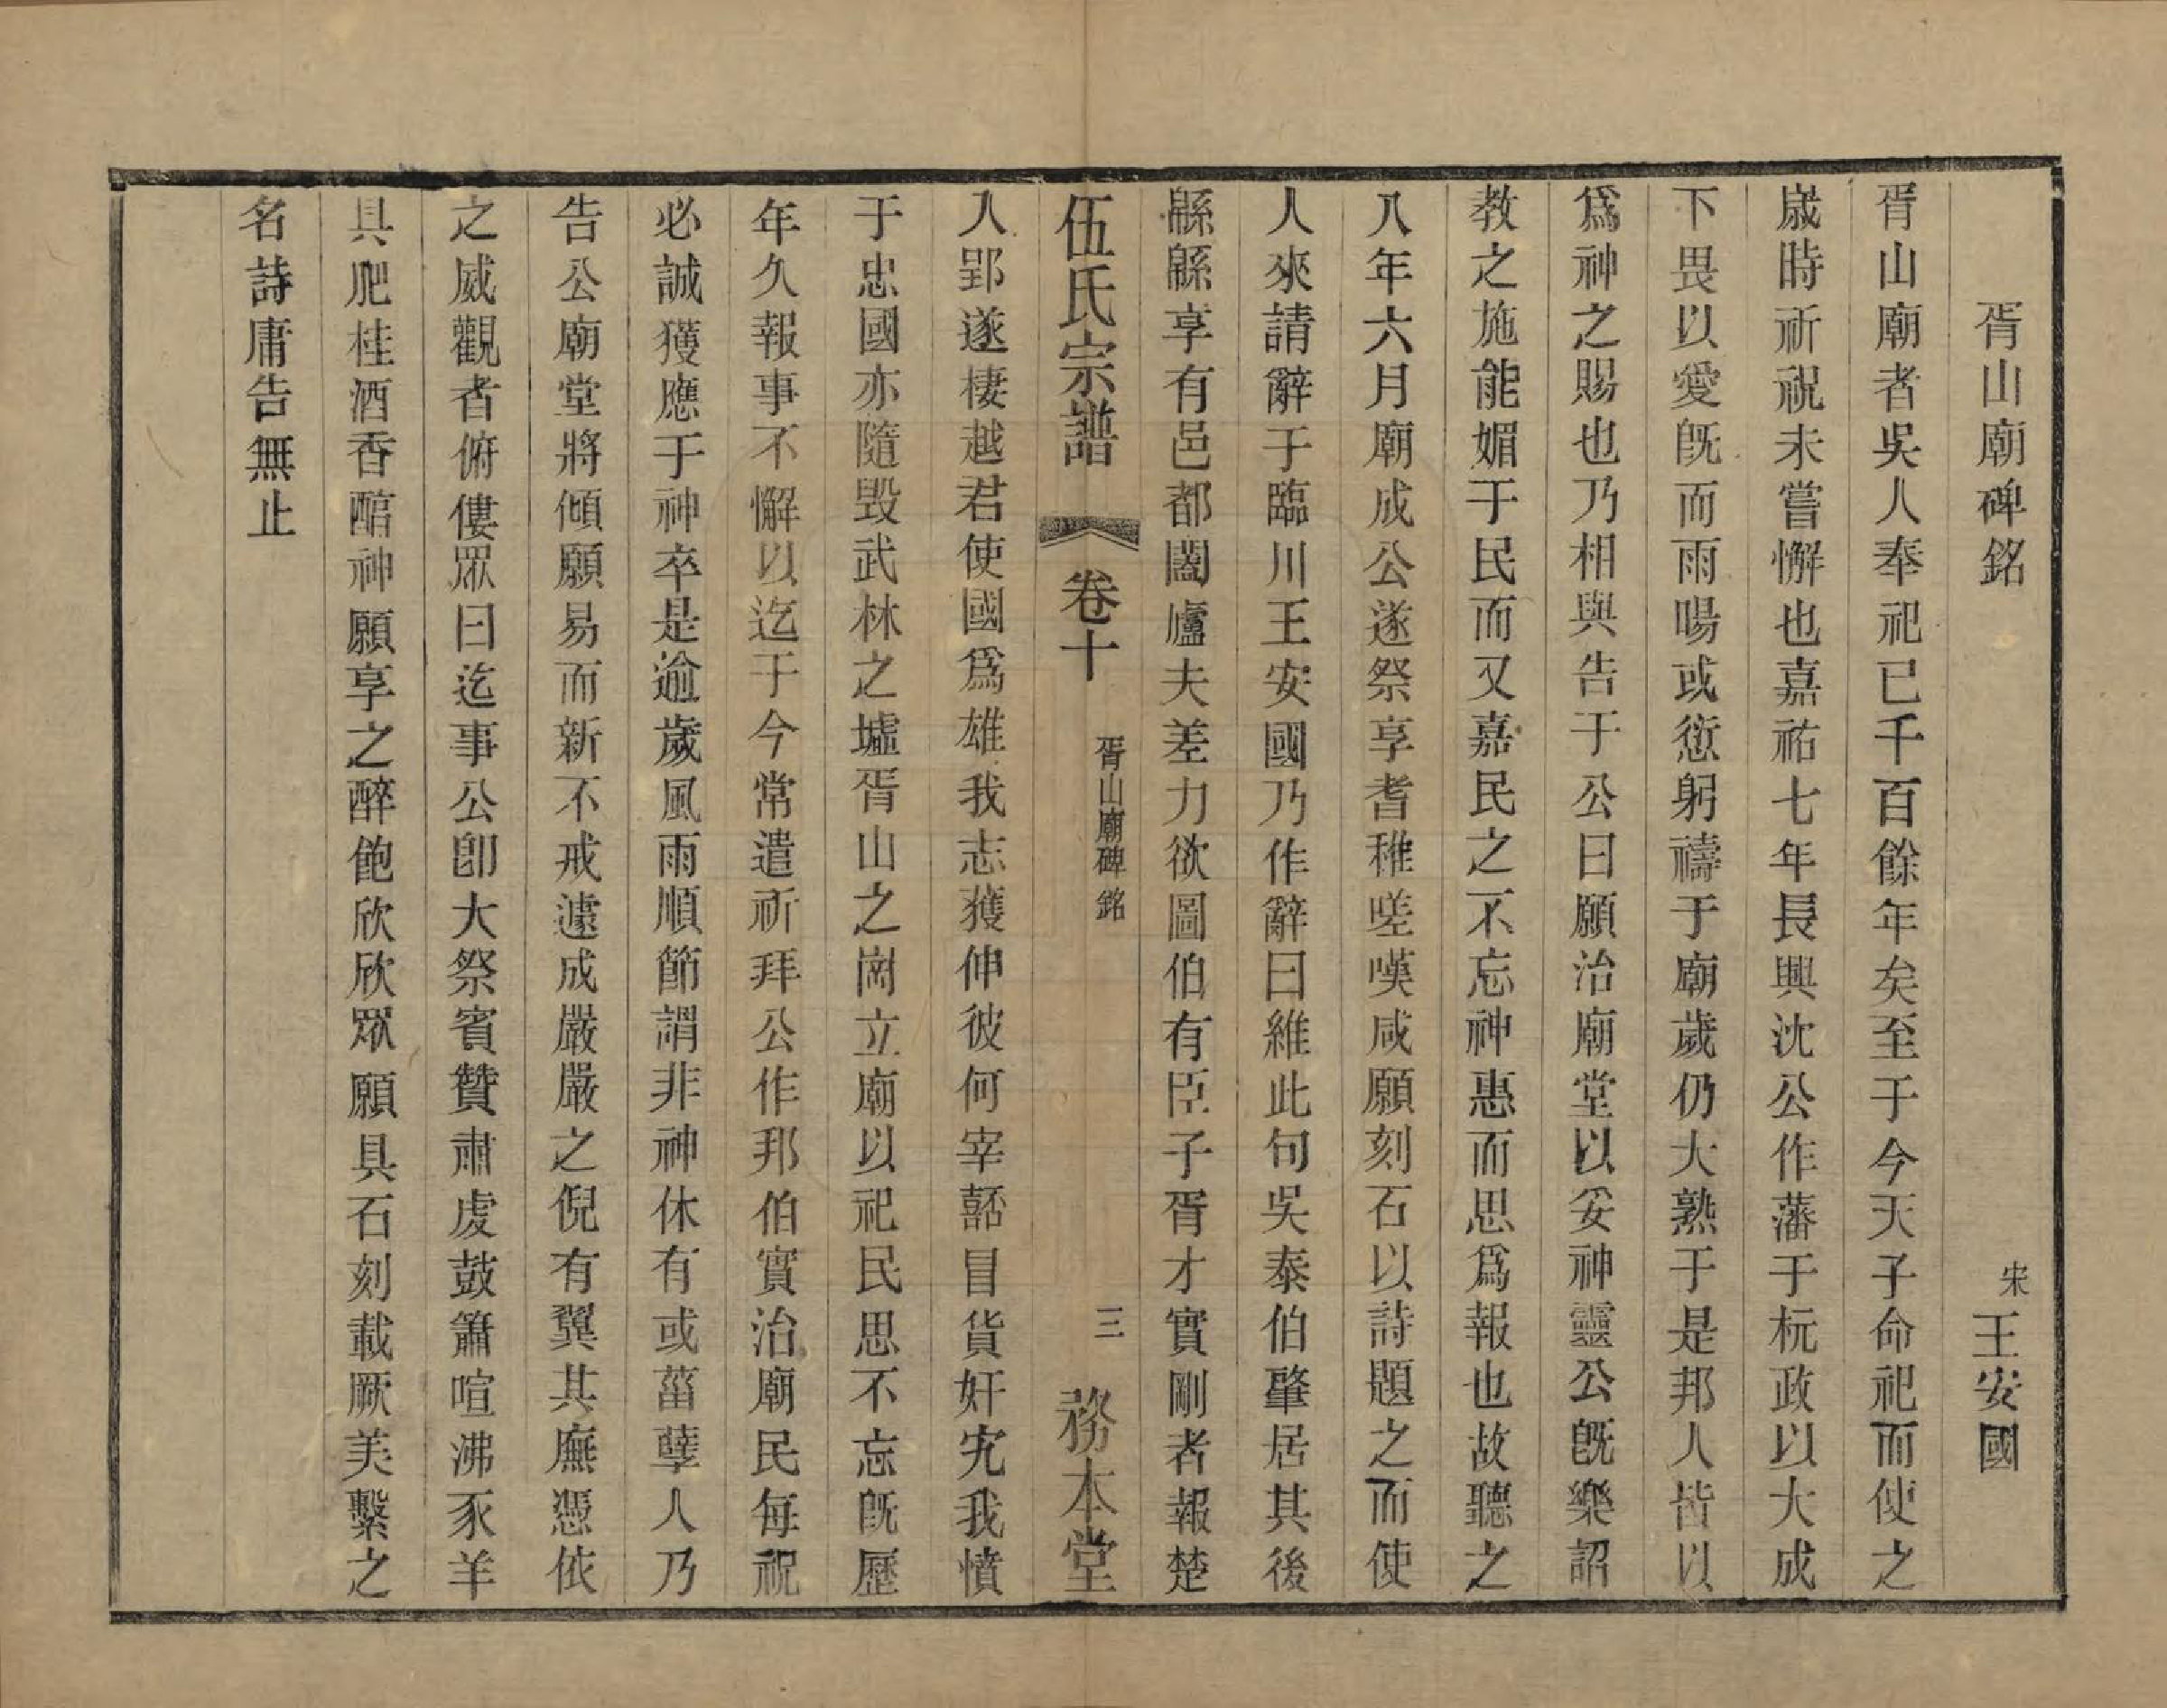 胥山廟碑銘　宋王安國
胥山廟者吳人奉祀已千百餘年矣至于今天子命祀而使之
歲時祈祝未嘗懈也嘉祐七年長興沈公作藩于杭政以大成
下畏以愛旣而雨暘或愆躬禱于廟歲仍大熟于是邦人皆以
爲神之賜也乃相與告于公曰願治廟堂以妥神靈公旣樂詔
教之施能媚于民而又嘉民之不忘神惠而思爲報也故聽之
八年六月廟成公遂祭享耆稚嗟嘆咸願刻石以詩題之而使
人來請辭于臨川王安國乃作辭曰維此句吳泰伯肇居其後
緜緜享有邑都闔廬夫差力欲圖伯有臣子胥才實剛者報楚
伍氏宗譜　卷十　胥山廟碑銘　三　務本堂
入郢遂棲越君使國爲雄我志獲伸彼何宰嚭冒貨奸宄我憤
于忠國亦隨毀武林之墟胥山之崗立廟以祀民思不忘旣歷
年久報事不懈以迄于今常遣祈拜公作邦伯實治廟民每祝
必誠獲應于神卒是逾歲風雨順節謂非神休有或菑孽人乃
告公廟堂將傾願易而新不戒遽成嚴嚴之倪有翼其廡憑依
之威觀者俯僂眾曰迄事公卽大祭賓贊肅虔鼓簫喧沸豕羊
具肥桂酒香醕神願享之醉飽欣欣眾願具石刻載厥美繫之
名詩庸告無止